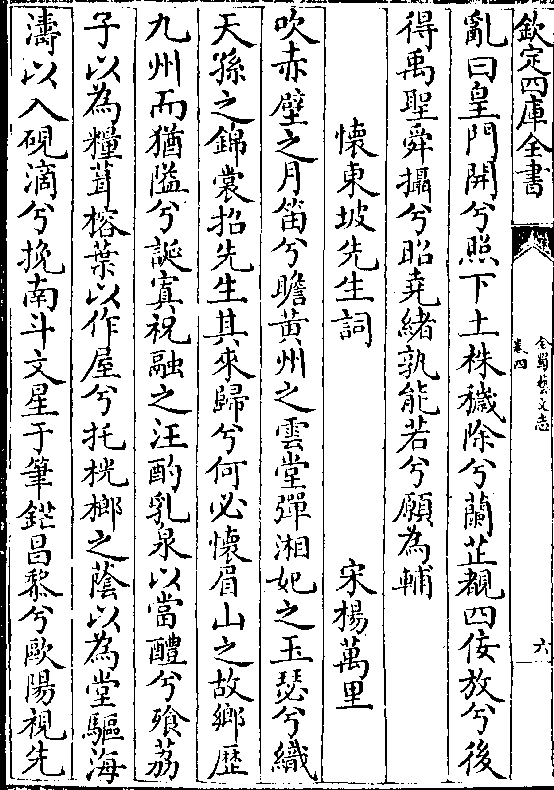 欽定四庫全書
全蜀藝文志
卷四
六
亂曰皇門開兮照下土株穢除兮蘭芷覩四佞放兮後
得禹聖舜攝兮昭堯緒孰能若兮願為輔
懷東坡先生詞 宋楊萬里
吹赤壁之月笛兮瞻黃州之雲堂彈湘妃之玉瑟兮織
天孫之錦裳招先生其來歸兮何必懷眉山之故鄉歴
九州而猶隘兮誕寘祝融之汪酌乳泉以當醴兮飱荔
子以為糧葺榕葉以作屋兮托桄榔之蔭以為堂驅海
濤以入硯滴兮挽南斗文星于筆鋩昌黎兮歐陽視先